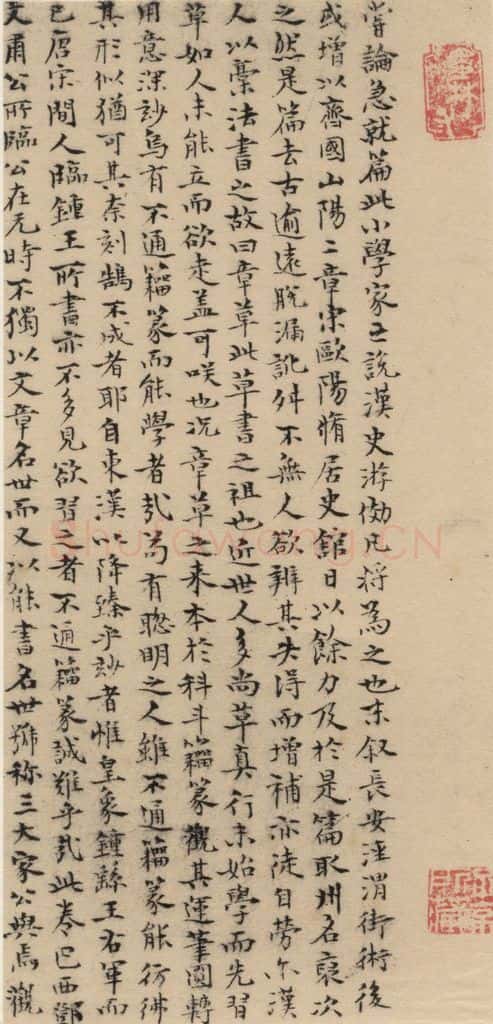 嘗論急就篇此小學家之說漢史游倣凡將為之也末叙長安涇渭街術後
或增以齊國山陽二章宋歐陽脩居史館日以餘力及於是篇取州名裒次
之然是篇去古逾遠脫漏訛舛不無人欲辨其失得而增補亦徒自勞尒漢
人以稾法書之故曰章草此草書之祖也近世人多尚草真行未始學而先習
草如人未能立而欲走蓋可咲也况章草之来本於科斗籀篆觀其運筆圓轉
用意深玅烏有不通籀篆而能學者㢤为有聰明之人雖不通籀篆能彷彿
其形似猶可其奈刻鵠不成者耶自東漢以降臻乎玅者惟皇象鍾繇王右軍而
已唐宋間人臨鍾王所書亦不多見欲習之者不通籀篆誠難乎㢤此卷巴西鄧
文肅公所臨公在元時不獨以文章名世而又以能書名世號称三大家公與焉觀
shufawang.CN